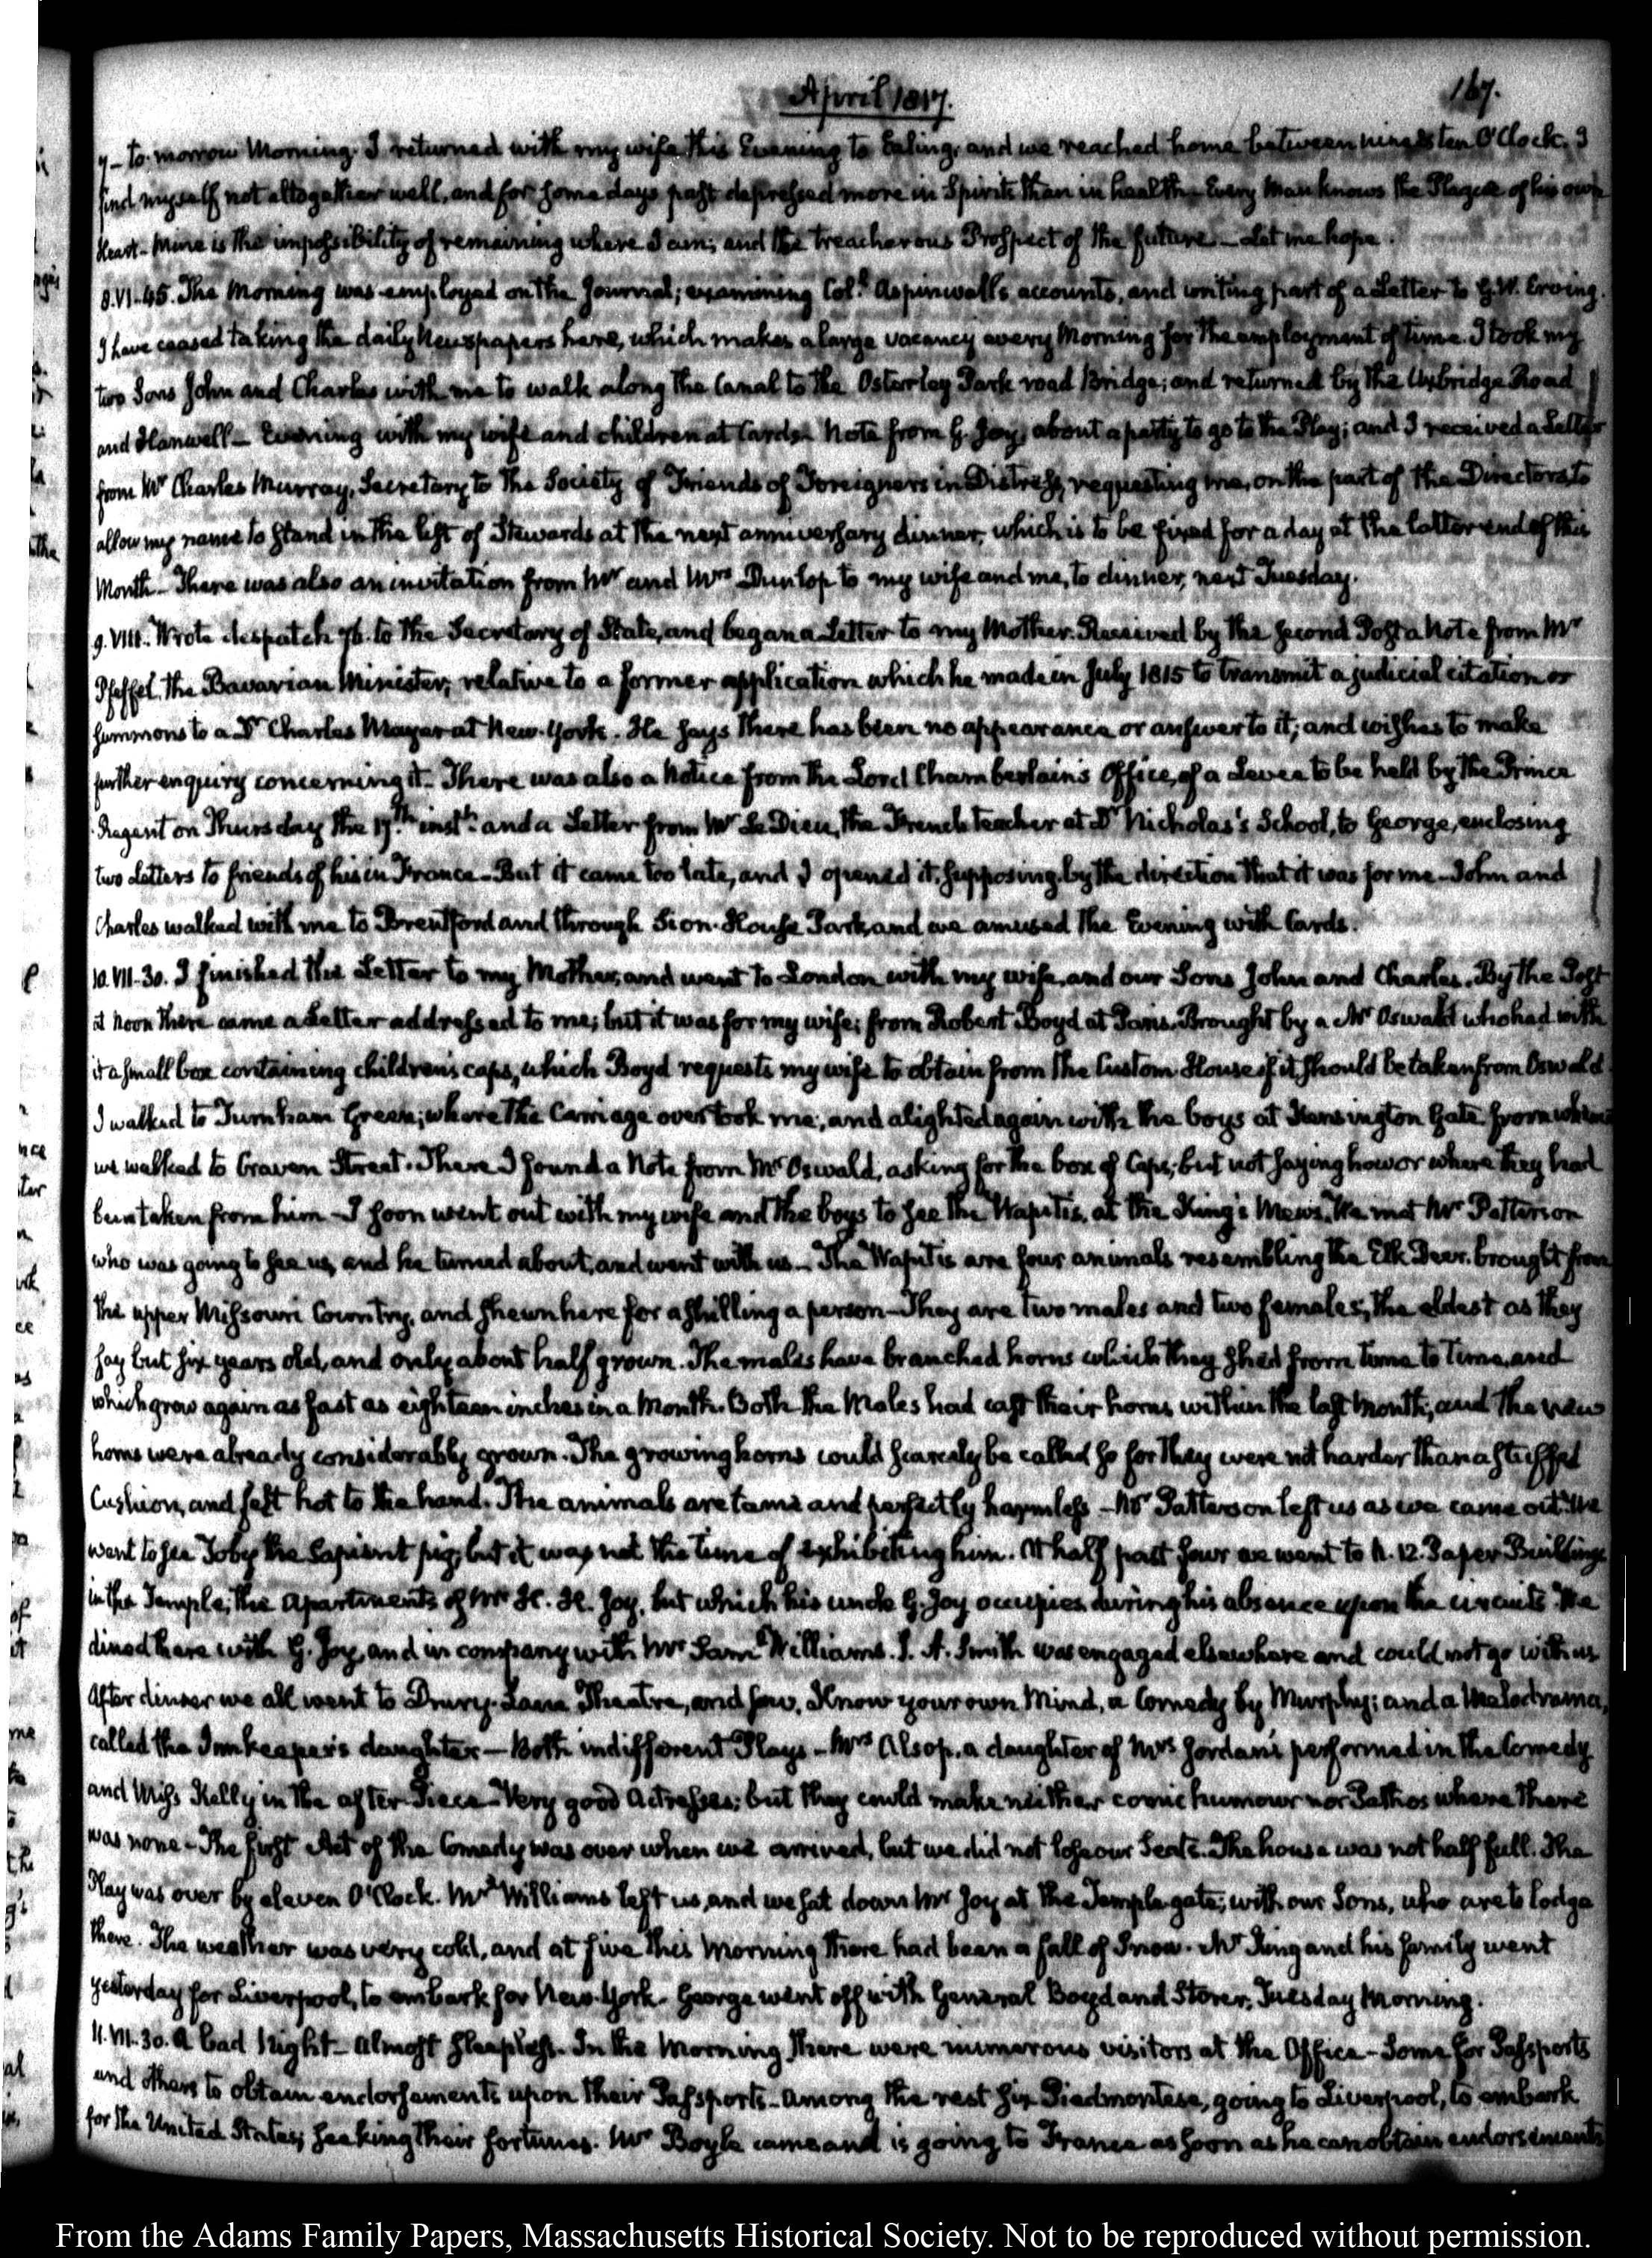 April 1817.
167.
7 - to-morrow Morning. I returned with my wife this Evening to Ealing, and we reached home between nine & ten O'Clock. I
find myself not altogether well, and for some days past depressed more in Spirits than in health - Every Man knows the Plague of his own
Heart - Mine is the impossibility of remaining where I am; and the treacherous Prospect of the future - Let me hope.
8. VI-45. The Morning was employed on the Journal; examining Coll. Aspinwall's accounts, and writing part of a Letter to G. W. Erving.
I have ceased taking the daily Newspapers here, which makes a large vacancy every Morning for the employment of time. I took my
two Sons John and Charles with me to walk along the Canal to the Osterley Park road Bridge; and returned by the Uxbridge Road
and Hanwell - Evening with my wife and children at Cards - Note from G. Joy, about a party to go to the Play; and I received a Letter
from Mr. Charles Murray, Secretary to the Society of Friends of Foreigners in Distress, requesting me, on the part of the Directors to
allow my name to stand in the list of Stewards at the next anniversary dinner, which is to be fixed for a day at the latter end of this
Month - There was also an invitation from Mr and Mrs Dunlop to my wife and me, to dinner, next Tuesday.
9. VIII. Wrote despatch 76. to the Secretary of State, and began a Letter to my Mother. Received by the second Post a Note from Mr
Pfeffel, the Bavarian Minister, relative to a former application which he made in July 1815 to transmit a judicial citation or
summons to a Dr Charles Mayer at New-York. He says there has been no appearance or answer to it; and wishes to make
further enquiry concerning it - There was also a Notice from the Lord Chamberlain's Office, of a Levee to be held by the Prince
Regent on Thursday the 17th. instt: and a Letter from Mr Le Dieu, the French teacher at Dr Nicholas's School, to George, enclosing
two Letters to friends of his in France - But it came too late, and I opened it, supposing by the direction that it was for me - John and
Charles walked with me to Brentford and through Sion-House Park, and we amused the Evening with Cards.
10. VII-30. I finished the Letter to my Mother, and went to London with my wife, and our Sons John and Charles. By the Post
at Noon there came a Letter addressed to me; but it was for my wife; from Robert Boyd at Paris. Brought by a Mr Oswald who had with
it a small box containing children's caps, which Boyd requests my wife to obtain from the Custom House if it should be taken from Oswald.
I walked to Turnham Green; where the Carriage overtook me; and alighted again with the boys at Kensington Gate from whence
we walked to Craven Street. There I found a Note from Mr Oswald, asking for the box of Caps; but not saying how or where they had
been taken from him - I soon went out with my wife and the boys to see the Wapitis, at the King's Mews. We met Mr Patterson
who was going to see us, and he turned about, and went with us - The Wapitis are four animals resembling the Elk Deer, brought from
the upper Missouri Country, and shewn here for a shilling a person - They are two males and two females, the eldest as they
say but six years old, and only about half grown. The males have branched horns which they shed from time to time, and
which grow again as fast as eighteen inches in a Month. Both the Males had cast their horns within the last Month; and the new
horns were already considerably grown. The growing horns could scarcely be called so for they were not harder than a stuffed
Cushion, and felt hot to the hand. The animals are tame and perfectly harmless - Mr Patterson left us as we came out. We
went to see Toby the Sapient pig; but it was not the time of exhibiting him. At half past four we went to N. 12. Paper Buildings
in the Temple; the Apartments of Mr H. H. Joy, but which his uncle G. Joy occupies during his absence upon the circuits. We
dined there with G. Joy, and in company with Mr Saml Williams. J. A. Smith was engaged elsewhere and could not go with us.
After dinner we all went to Drury-Lane Theatre, and saw, Know your own Mind, a Comedy by Murphy; and a Melodrama,
called the Innkeeper's daughter - Both indifferent Plays - Mrs Alsop, a daughter of Mrs Jordan's performed in the Comedy
and Miss Kelly in the after-Piece - Very good Actresses; but they could make neither comic humour nor Pathos where there
was none - The first Act of the Comedy was over when we arrived, but we did not lose our Seats. The house was not half full. The
Play was over by eleven O'Clock. Mr Williams left us, and we sat down Mr Joy at the Temple gate; with our Sons, who are to lodge
there. The weather was very cold, and at five this Morning there had been a fall of Snow. Mr King and his family went
yesterday for Liverpool, to embark for New-York. George went off with General Boyd and Storer, Tuesday Morning.
11. VII-30. A bad Night - Almost sleepless. In the Morning there were numerous visitors at the Office - Some for Passports
and others to obtain endorsements upon their Passports - Among the rest six Piedmontese, going to Liverpool, to embark
for the United States; seeking their fortunes. Mr Boyle came and is going to France as soon as he can obtain endorsements
From the Adams Family Papers, Massachusetts Historical Society. Not to be reproduced without permission.